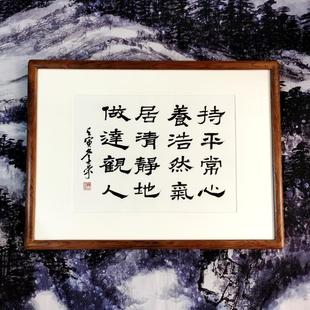 持平常心
養浩然氣
居清靜地
做達觀人
壬寅